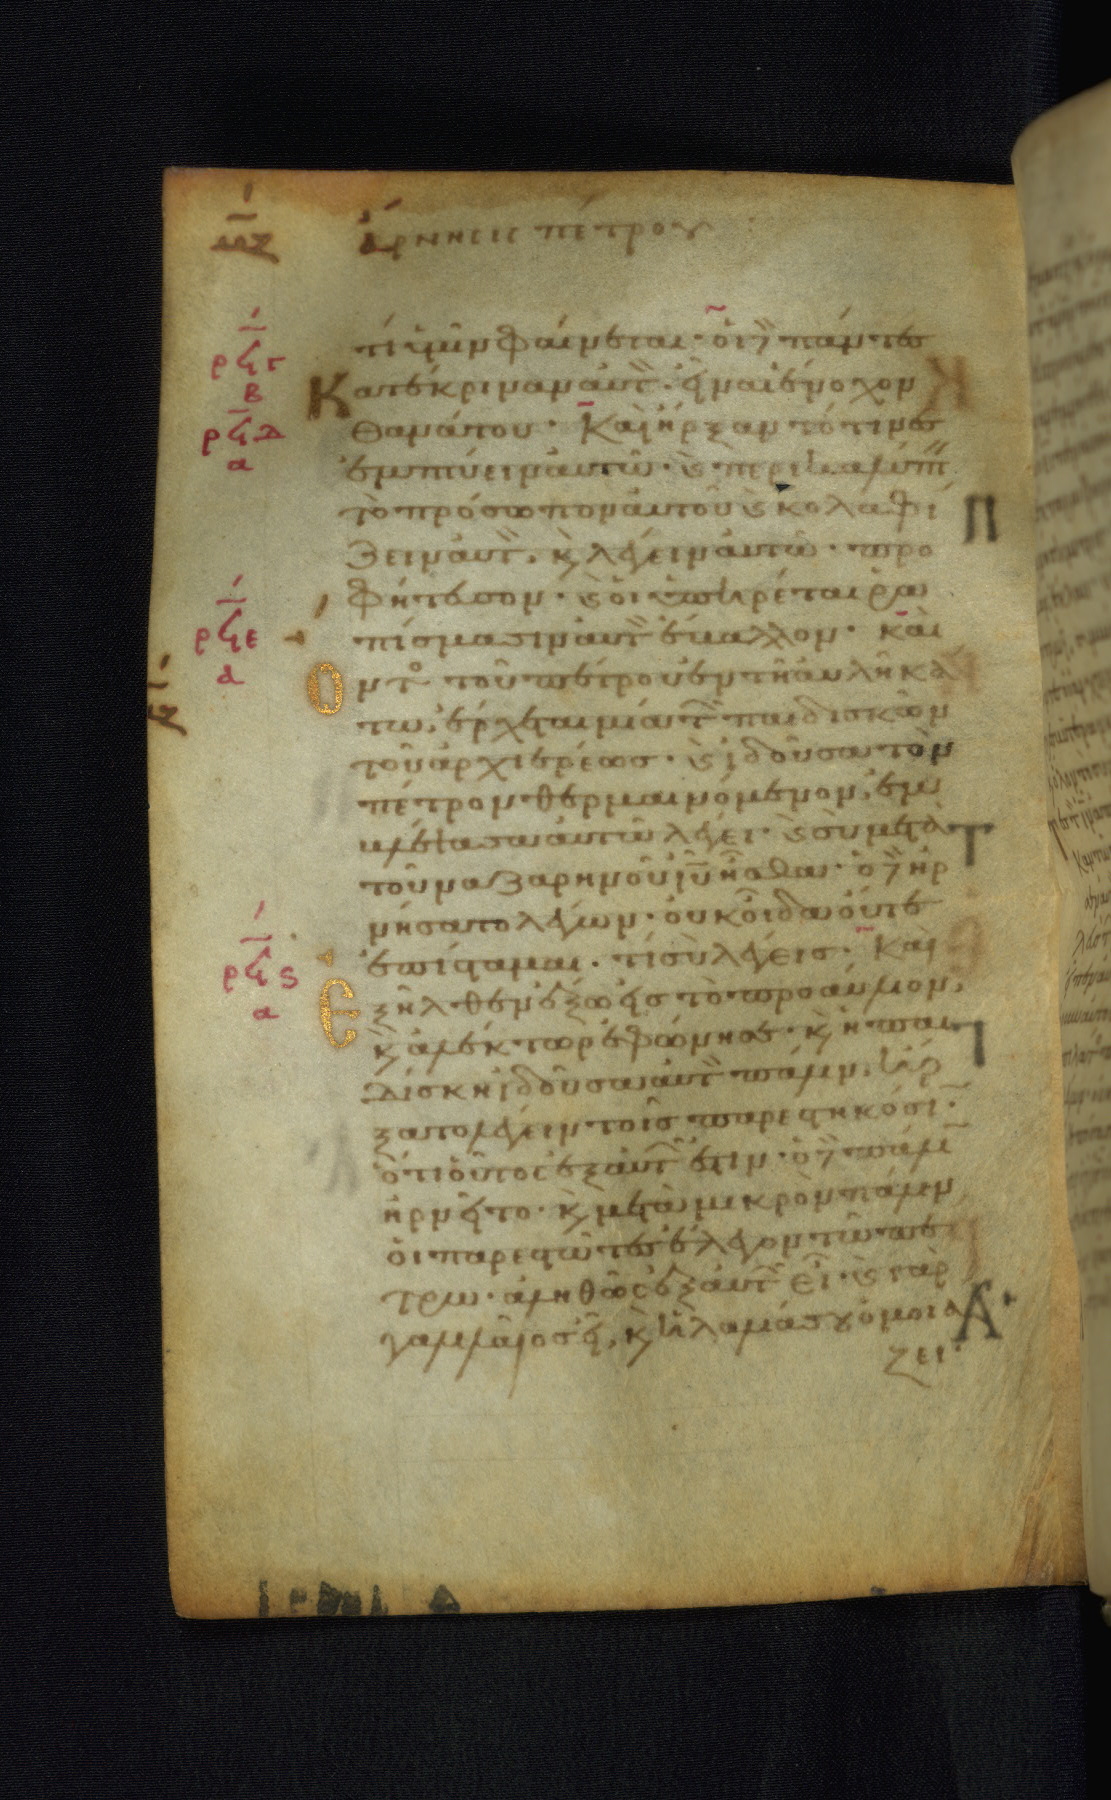 ἄρνησις πέτρου
τί ὑμῖν φαίνεται· οἱ δὲ πάντες
Κατέκριναν αὐτ εἶναι ἔνοχον
θανάτου· Καὶ ἤρξαντό τινες
ἐμπτύειν αὐτῶ· καὶ περικαλύπτ
τὸ πρόσωπον αὐτοῦ καὶ κολαφί
ζειν αὐτ, καὶ λέγειν αὐτῶ· προ
φήτευσον· καὶ οἱ ὑπηρέται ῥα
πίσμασιν αὐτ ἔβαλλον· καὶ
Οντ τοῦ πέτρου ἐν τῆ αὐλῆ κά
τω, ἔρχεται μία τ παιδισκῶν
τοῦ ἀρχιερέως· καὶ ἰδοῦσα τὸν
πέτρον θερμαινόμενον, ἐμ
βλέψασα αὐτῶ λέγει· καὶ σὺ μετὰ
τοῦ ναζαρηνοῦ ἰυ ἦσθα· ὁ δὲ ἠρ
νήσατο λέγων· οὐκ οἶδα οὔτε
ἐπίσταμαι· τί σὺ λέγεις· Καὶ
Εξῆλθεν ἔξω εἰς τὸ προαύλιον,
καὶ ἀλέκτωρ ἐφώνησε· καὶ ἡ παι
δίσκη ἰδοῦσα αὐτ πάλιν, ἤρ
ξατο λέγειν τοῖς παρεστηκόσι·
ὅτι οὗτος ἐξ αὐτ ἐστιν· ὁ δὲ πάλι
ἠρνεῖτο· καὶ μετὰ μικρὸν πάλιν
οἱ παρεστῶτες ἔλεγον τῶ πέ
τρω· ἀληθῶς ἐξ αὐτ εἶ· καὶ γὰρ
γαλιλαῖος εἶ, καὶ ἡ λαλιά σου ὁμοιά
ζει·
ρϟγ
β
ρϟδ
α
ρϟε
α
ρϟς
α